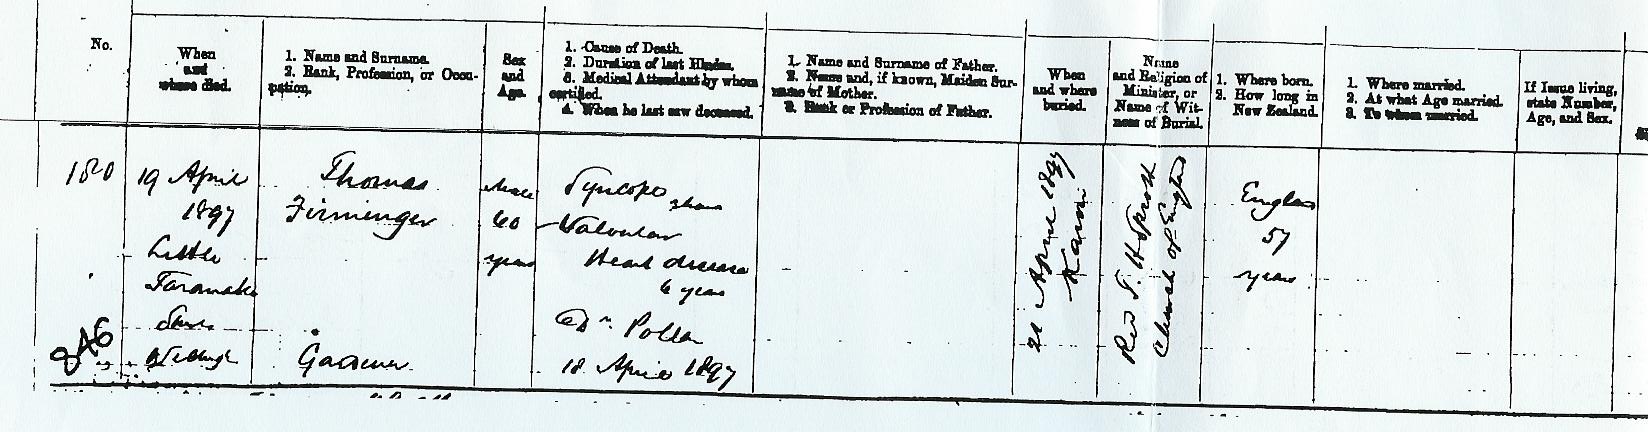 No.
When
and
where died.
1. Name and Surname.
2. Rank, Profession, or Occu-
pation.
Sex
and
Age.
1. Cause of Death.
2. Duration of last Illness.
3. Medical Attendant by whom
certified.
4. When he last saw deceased.
1. Name and Surname of Father.
2. Name and, if known, Maiden Sur-
name of Mother.
3. Rank or Profession of Father.
When
and where
buried.
Name
and Religion of
Minister, or
Name of Wit-
ness of Burial.
1. Where born.
2. How long in
New Zealand.
1. Where married.
2. At what Age married.
3. To whom married.
If Issue living,
state Number,
Age, and Sex.
180
846
19 April
1897
Little
Taranaki
Wellington
Thomas
Firminger
Gardener
Male
60
years
Syncope
Valvular
Heart disease
6 years
Dr. Pollen
18 April 1897
21 April 1897
Karori
Rev T. H. Sprott
Church of England
England
57
years